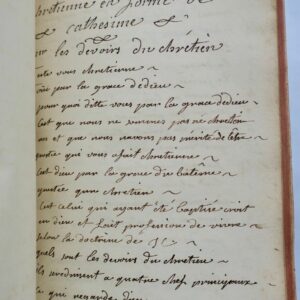 hrétienne en forme de
cathesime
ur les devoirs du chrétien
ete vous chretienne
oüi pour la grace dedieu
pour quoi ditte vous par la grace dedieu
est que nous ne sommes pas ne chretien
an et que nous navons pas mérité de letre
questce qui vous afait chretienne
est dieu par la grace du batême
questce quun chretien
est celui qui ayant été baptisé croit
en dieu et fait profession de vivre
selon la doctrine de JC
quels sont les devoirs du chretien
ils ce reduisent a quatre chef principaux
qui regarde dieu